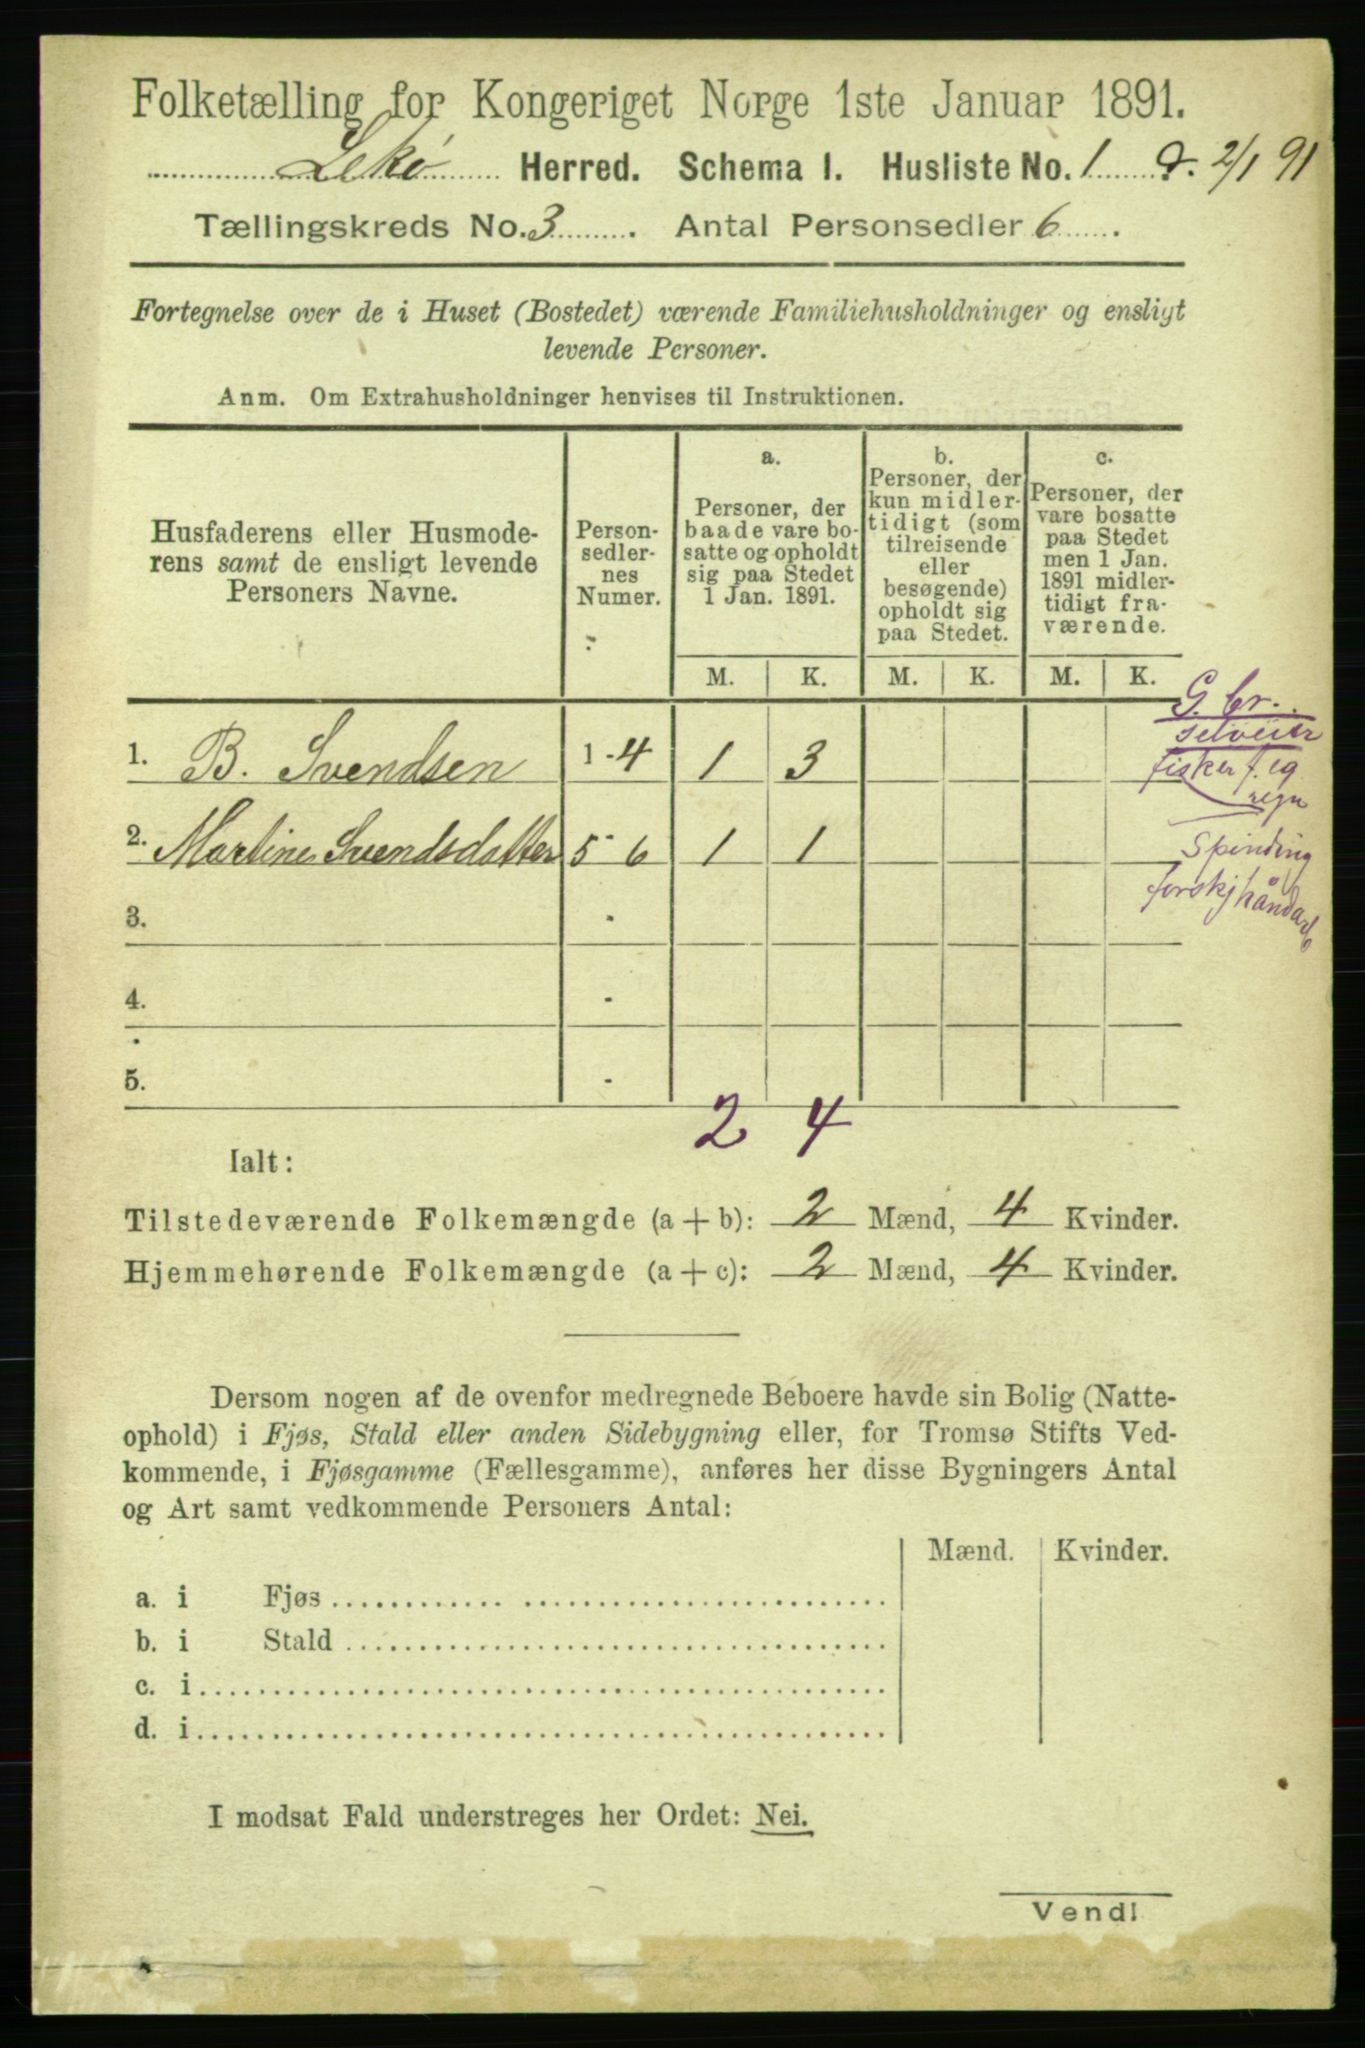 Folketælling for Kongeriget Norge 1ste Januar 1891.
Lekø Herred. Schema I. Husliste No. 1 d. 2/1 91
Tællingskreds No. 3. Antal Personsedler 6.
Fortegnelse over de i Huset (Bostedet) værende Familiehusholdninger og ensligt
levende Personer.
Anm. Om Extrahusholdninger henvises til Instruktionen.
Husfaderens eller Husmode-
rens samt de ensligt levende
Personers Navne.
Person-
sedler-
nes
Numer.
a.
Personer, der
baade vare bo-
satte og opholdt
sig paa Stedet
1 Jan. 1891.
b.
Personer, der
kun midler-
tidigt (som
tilreisende
eller
besøgende)
opholdt sig
paa Stedet.
c.
Personer, der
vare bosatte
paa Stedet
men 1 Jan.
1891 midler-
tidigt fra-
værende.
M. K. M. K. M. K.
G. br.
selveier
fisker f. eg
regn
1. B. Svendsen 1-4 1 3
2. Martine Svendsdatter 5-6 1 1
Spinding
forskj håndarb
3. -
4. -
5. -
2 4
Ialt:
Tilstedeværende Folkemængde (a + b): 2 Mænd, 4 Kvinder.
Hjemmehørende Folkemængde (a + c): 2 Mænd, 4 Kvinder.
Dersom nogen af de ovenfor medregnede Beboere havde sin Bolig (Natte-
ophold) i Fjøs, Stald eller anden Sidebygning eller, for Tromsø Stifts Ved-
kommende, i Fjøsgamme (Fællesgamme), anføres her disse Bygningers Antal
og Art samt vedkommende Personers Antal:
Mænd. Kvinder.
a. i Fjøs
b. i Stald
c. i
d. i
I modsat Fald understreges her Ordet: Nei.
Vend!